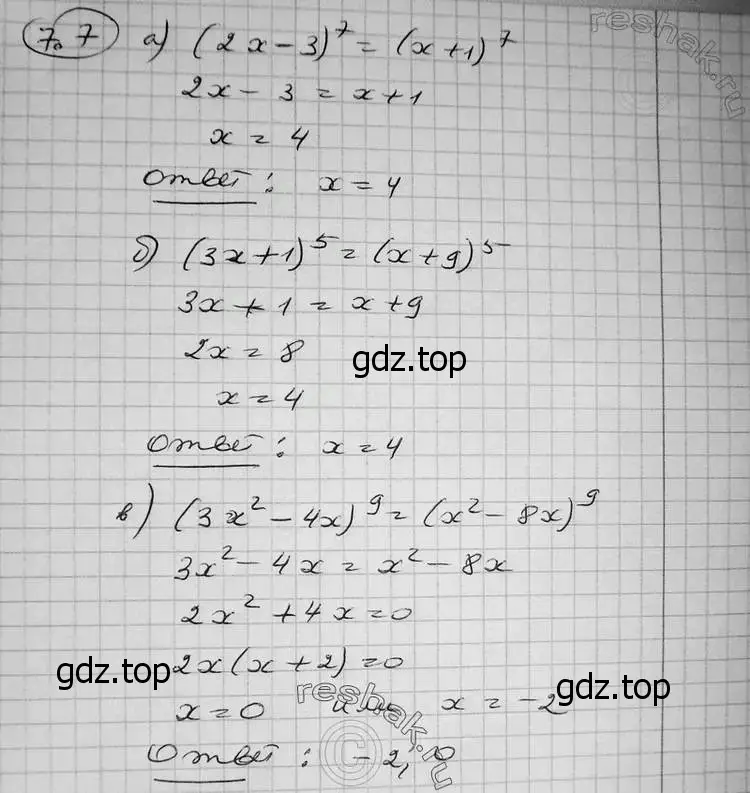 7.7 а) (2x-3)⁷ = (x+1)⁷
2x - 3 = x+1
x = 4
Ответ: x = 4
б) (3x+1)⁵ = (x+9)⁵
3x + 1 = x+9
2x = 8
gdz.top
x = 4
Ответ: x = 4
в) (3x² - 4x)⁹ = (x² - 8x)⁹
3x² - 4x = x² - 8x
2x² + 4x = 0
2x(x+2) = 0
gdz.top
x = 0 или x = -2
gdz.top
Ответ: -2, 0
reshak.ru
reshak.ru